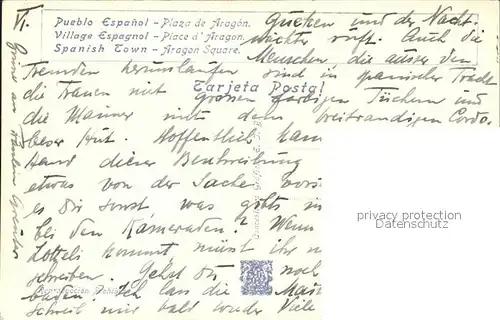 VI.
Pueblo Español - Plaza de Aragón.
Village Espagnol - Place d'Aragon.
Spanish Town - Aragon Square.
Tarjeta Postal
gucken und der Nacht-
wächter ruft. Auch die
Menschen, die ausser den
Fremden herumlaufen sind in spanischer Tracht
die Frauen mit grossen farbigen Tüchern und
die Männer mit dem breitrandigen Cordo-
beser Hut. Hoffentlich kann
Hand dieser Beschreibung
etwas von der Sache vors
es Dir sonst was gibts in
bei den Kameraden? Wenn
Lottels kommt müsst ihr m
schreiben. Gehst Du noch
baden. Ich lass die
Schreib mir bald wieder Viele
privacy protection
Datenschutz